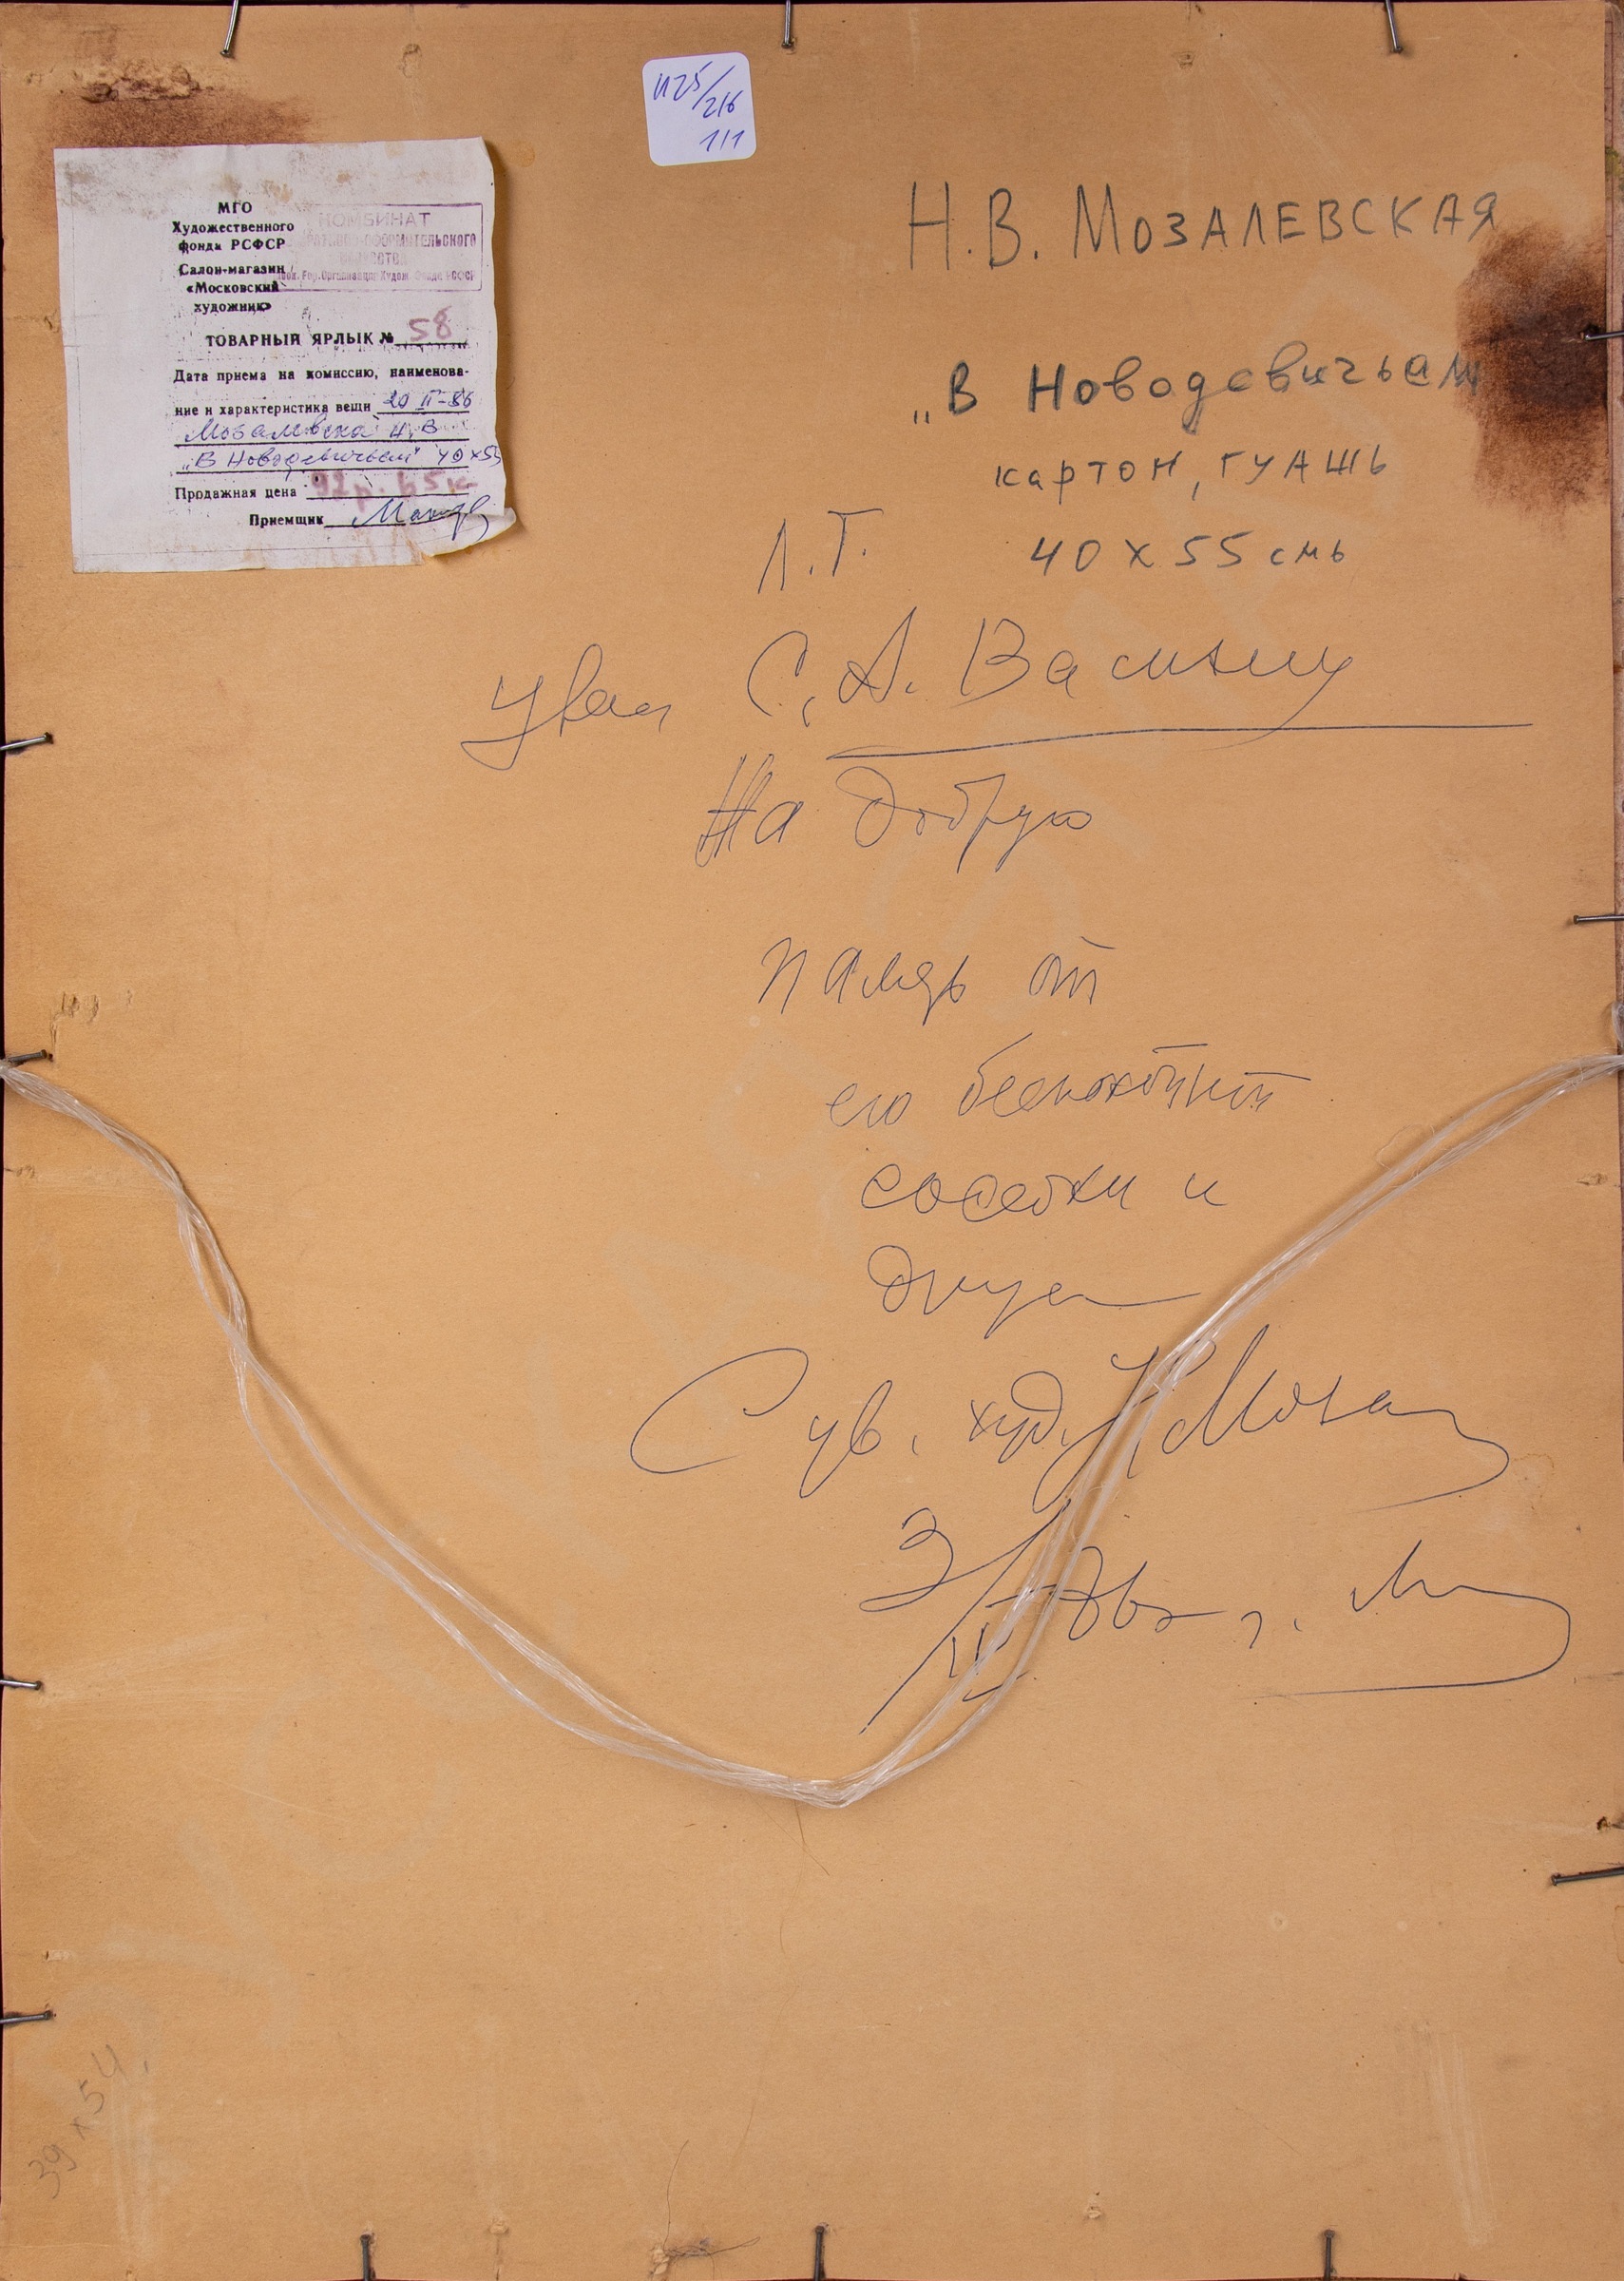 И25/216
1/1
МГО
Художественного
фонда РСФСР
Салон-магазин
«Московский
художник»
КОМБИНАТ
ОФОРМИТЕЛЬСКОГО
ТОВАРНЫЙ ЯРЛЫК № 58
Дата приема на комиссию, наименова-
ние и характеристика вещи 20 II-86
Мозалевска Н.В
„В Новодевичьем" 40х55
Продажная цена 92р. 65к
Приемщик
Н.В. МОЗАЛЕВСКАЯ
„В Новодевичьем
картон, гуашь
40 x 55 смь
Л.Т.
Уваж С.А. Васину
На добрую
память от
его беспокойной
соседки и
друга
С ув. худ. Н. Моза
39 х 54.